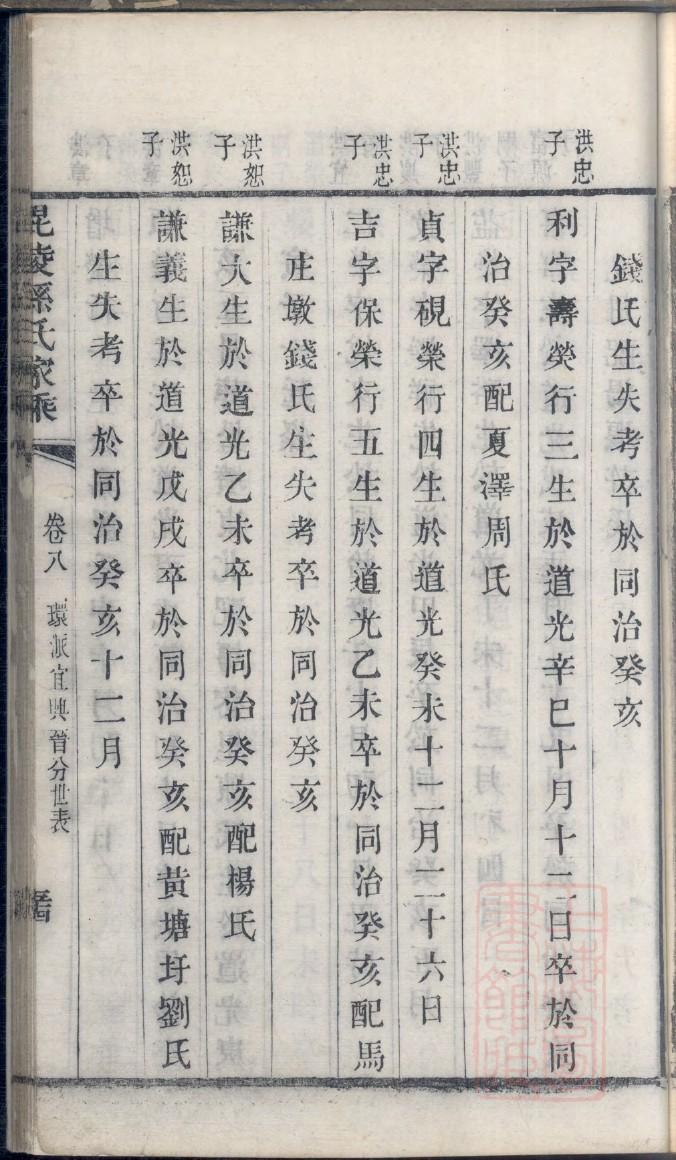 錢氏生失考卒於同治癸亥
洪忠子
利字壽榮行三生於道光辛巳十月十二日卒於同
治癸亥配夏澤周氏
洪忠子
貞字硯榮行四生於道光癸未十二月二十六日
洪忠子
吉字保榮行五生於道光乙未卒於同治癸亥配馬
庄墩錢氏生失考卒於同治癸亥
洪恕子
謙大生於道光乙未卒於同治癸亥配楊氏
洪恕子
謙義生於道光戊戌卒於同治癸亥配黃塘圩劉氏
生失考卒於同治癸亥十二月
毘陵孫氏家乘
卷八
環派宜興晉分世表